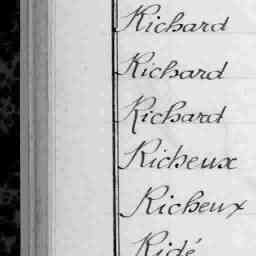 Richard
Richard
Richard
Richeux
Richeux
Ridé